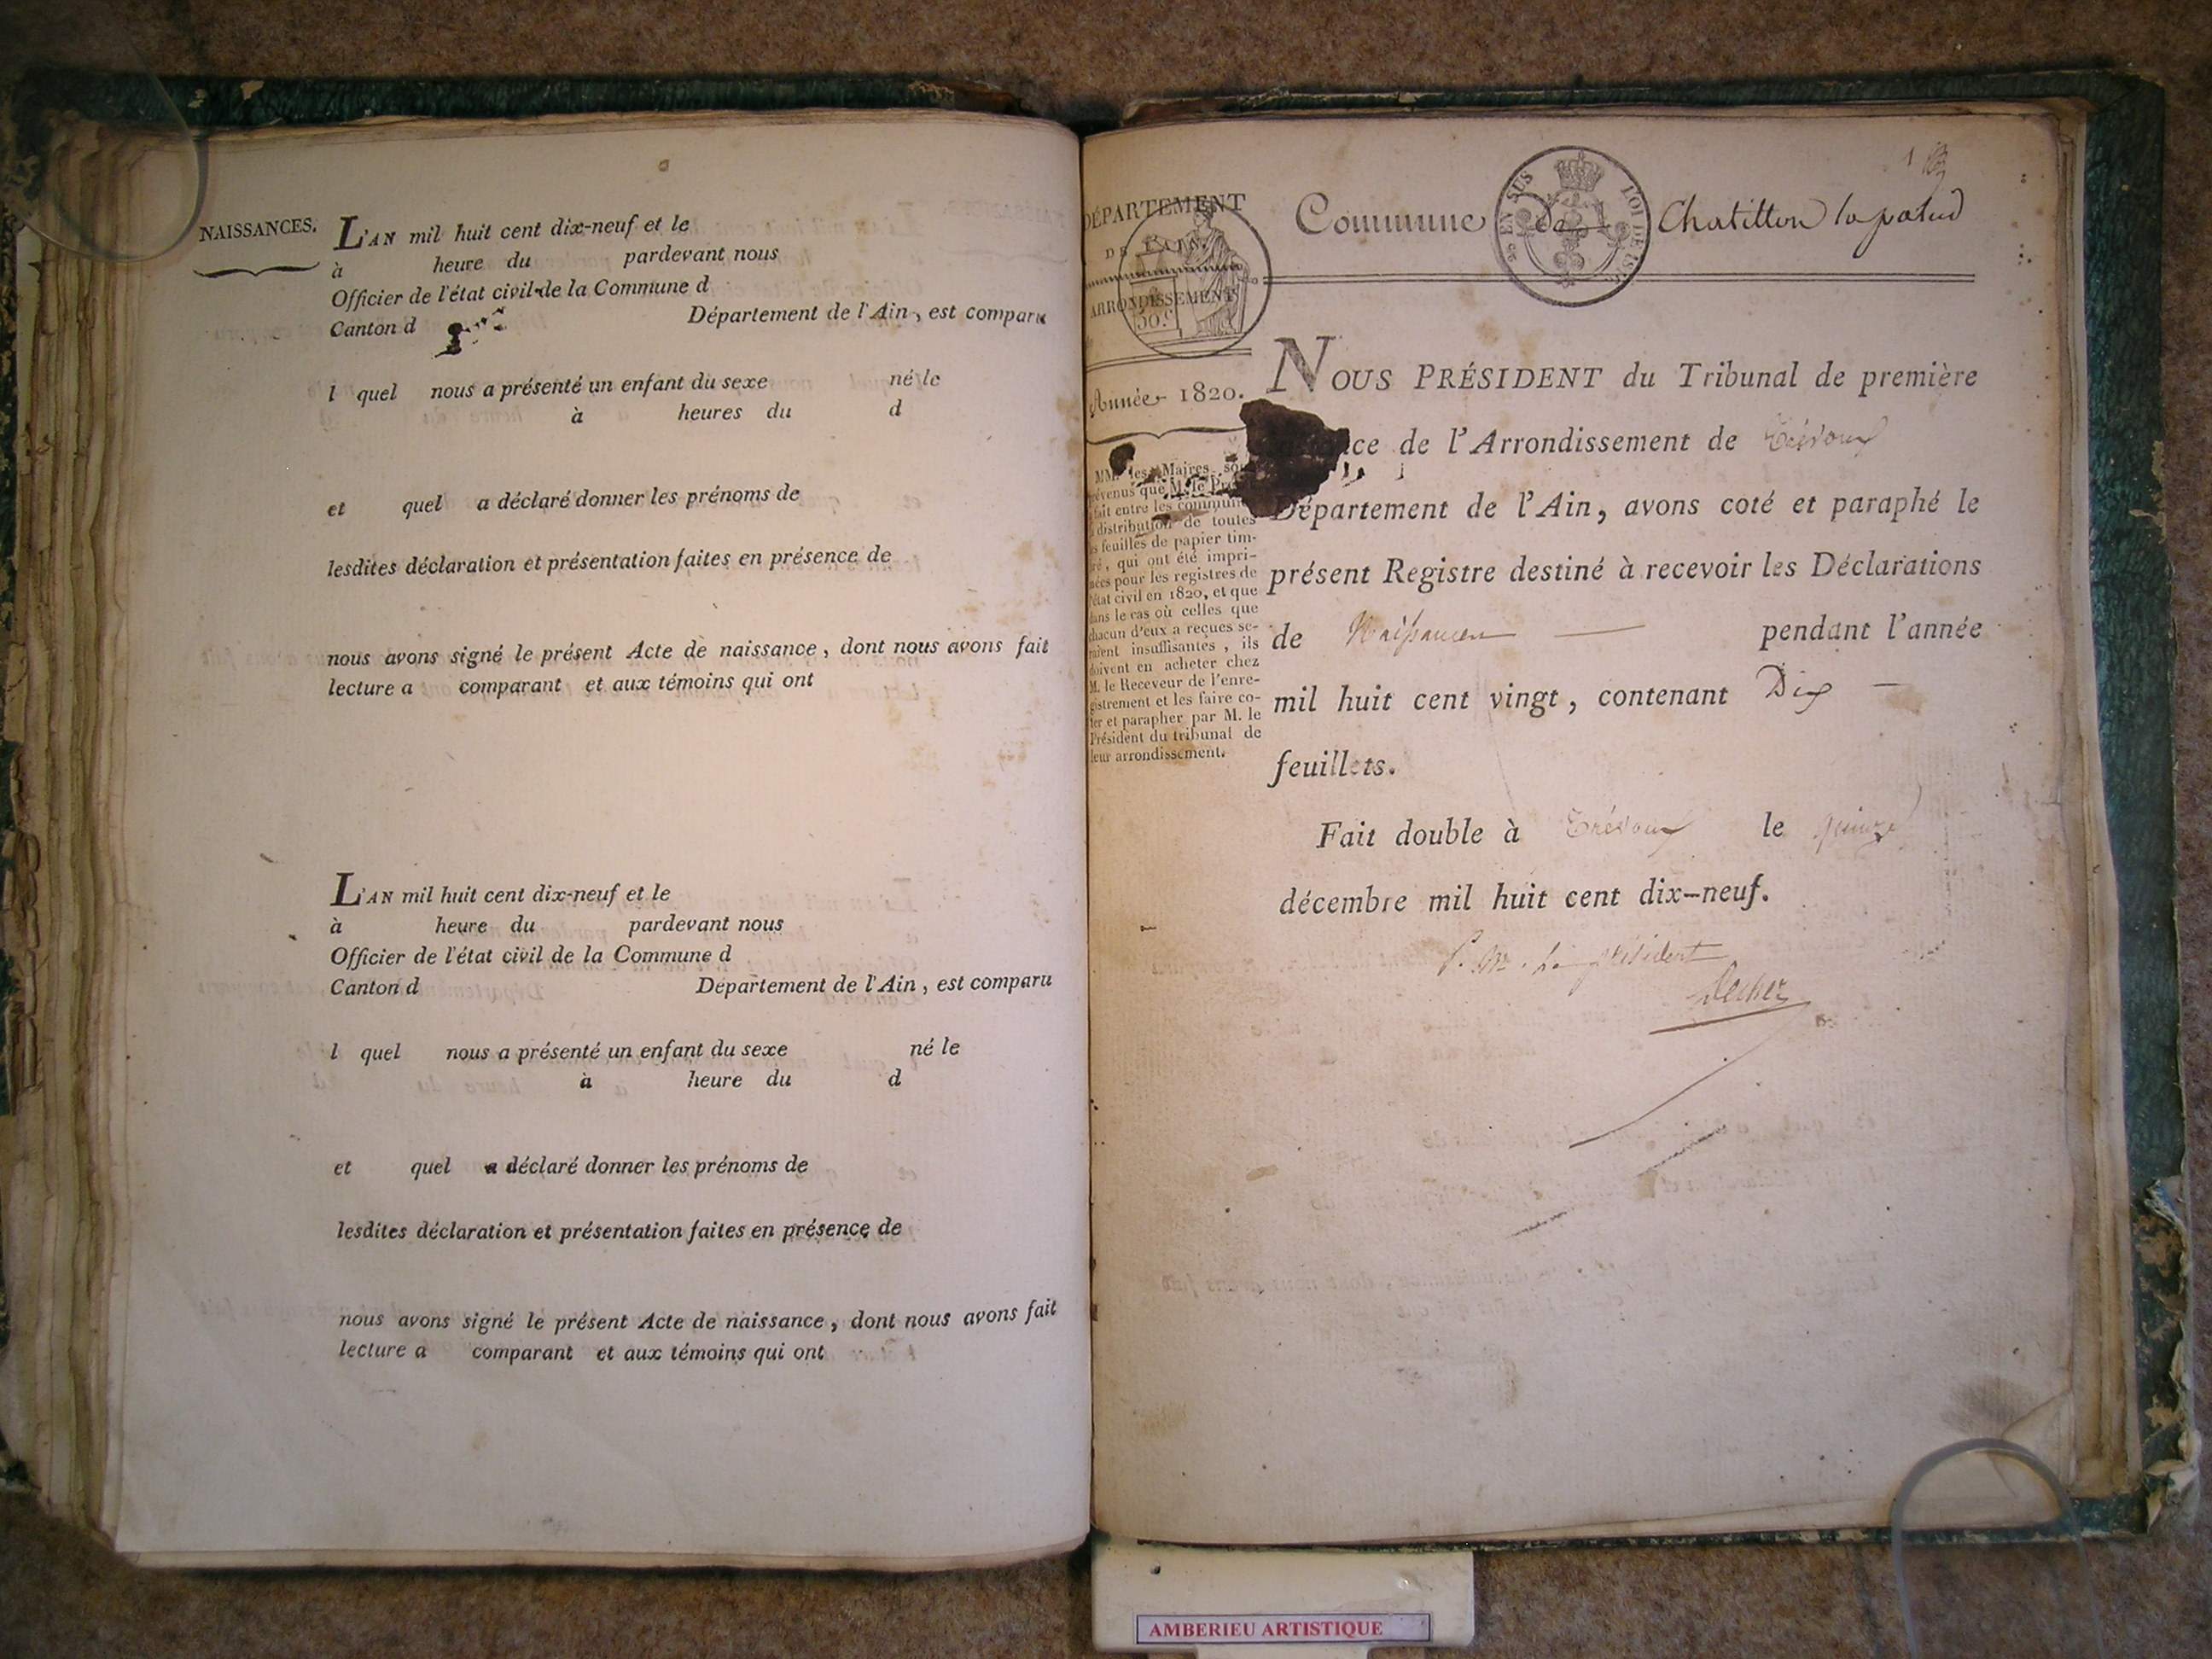 NAISSANCES.
L'AN mil huit cent dix-neuf et le
à heure du pardevant nous
Officier de l'état civil de la Commune d
Canton d Département de l'Ain, est comparu
l quel nous a présenté un enfant du sexe né le
à heures du d
et quel a déclaré donner les prénoms de
lesdites déclaration et présentation faites en présence de
nous avons signé le présent Acte de naissance, dont nous avons fait
lecture a comparant et aux témoins qui ont
L'AN mil huit cent dix-neuf et le
à heure du pardevant nous
Officier de l'état civil de la Commune d
Canton d Département de l'Ain, est comparu
l quel nous a présenté un enfant du sexe né le
à heure du d
et quel a déclaré donner les prénoms de
lesdites déclaration et présentation faites en présence de
nous avons signé le présent Acte de naissance, dont nous avons fait
lecture a comparant et aux témoins qui ont
DÉPARTEMENT
DE L'AIN
ARRONDISSEMENT
50 c
Année 1820.
MM. les Maires
prévenus que M. le
fait entre les
distribution de toutes
feuilles de papier tim-
bré, qui ont été impri-
mées pour les registres de
l'état civil en 1820, et que
dans le cas où celles que
chacun d'eux a reçues se-
raient insuffisantes, ils
doivent en acheter chez
M. le Receveur de l'enre-
gistrement et les faire co-
ter et parapher par M. le
Président du tribunal de
leur arrondissement.
1
Commune de Chatillon la palud
EN SUS LOI DE
NOUS PRÉSIDENT du Tribunal de première
ce de l'Arrondissement de Trévoux
Département de l'Ain, avons coté et paraphé le
présent Registre destiné à recevoir les Déclarations
de Naissances — pendant l'année
mil huit cent vingt, contenant Dix —
feuillets.
Fait double à Trévoux le quinze
décembre mil huit cent dix-neuf.
président
AMBERIEU ARTISTIQUE